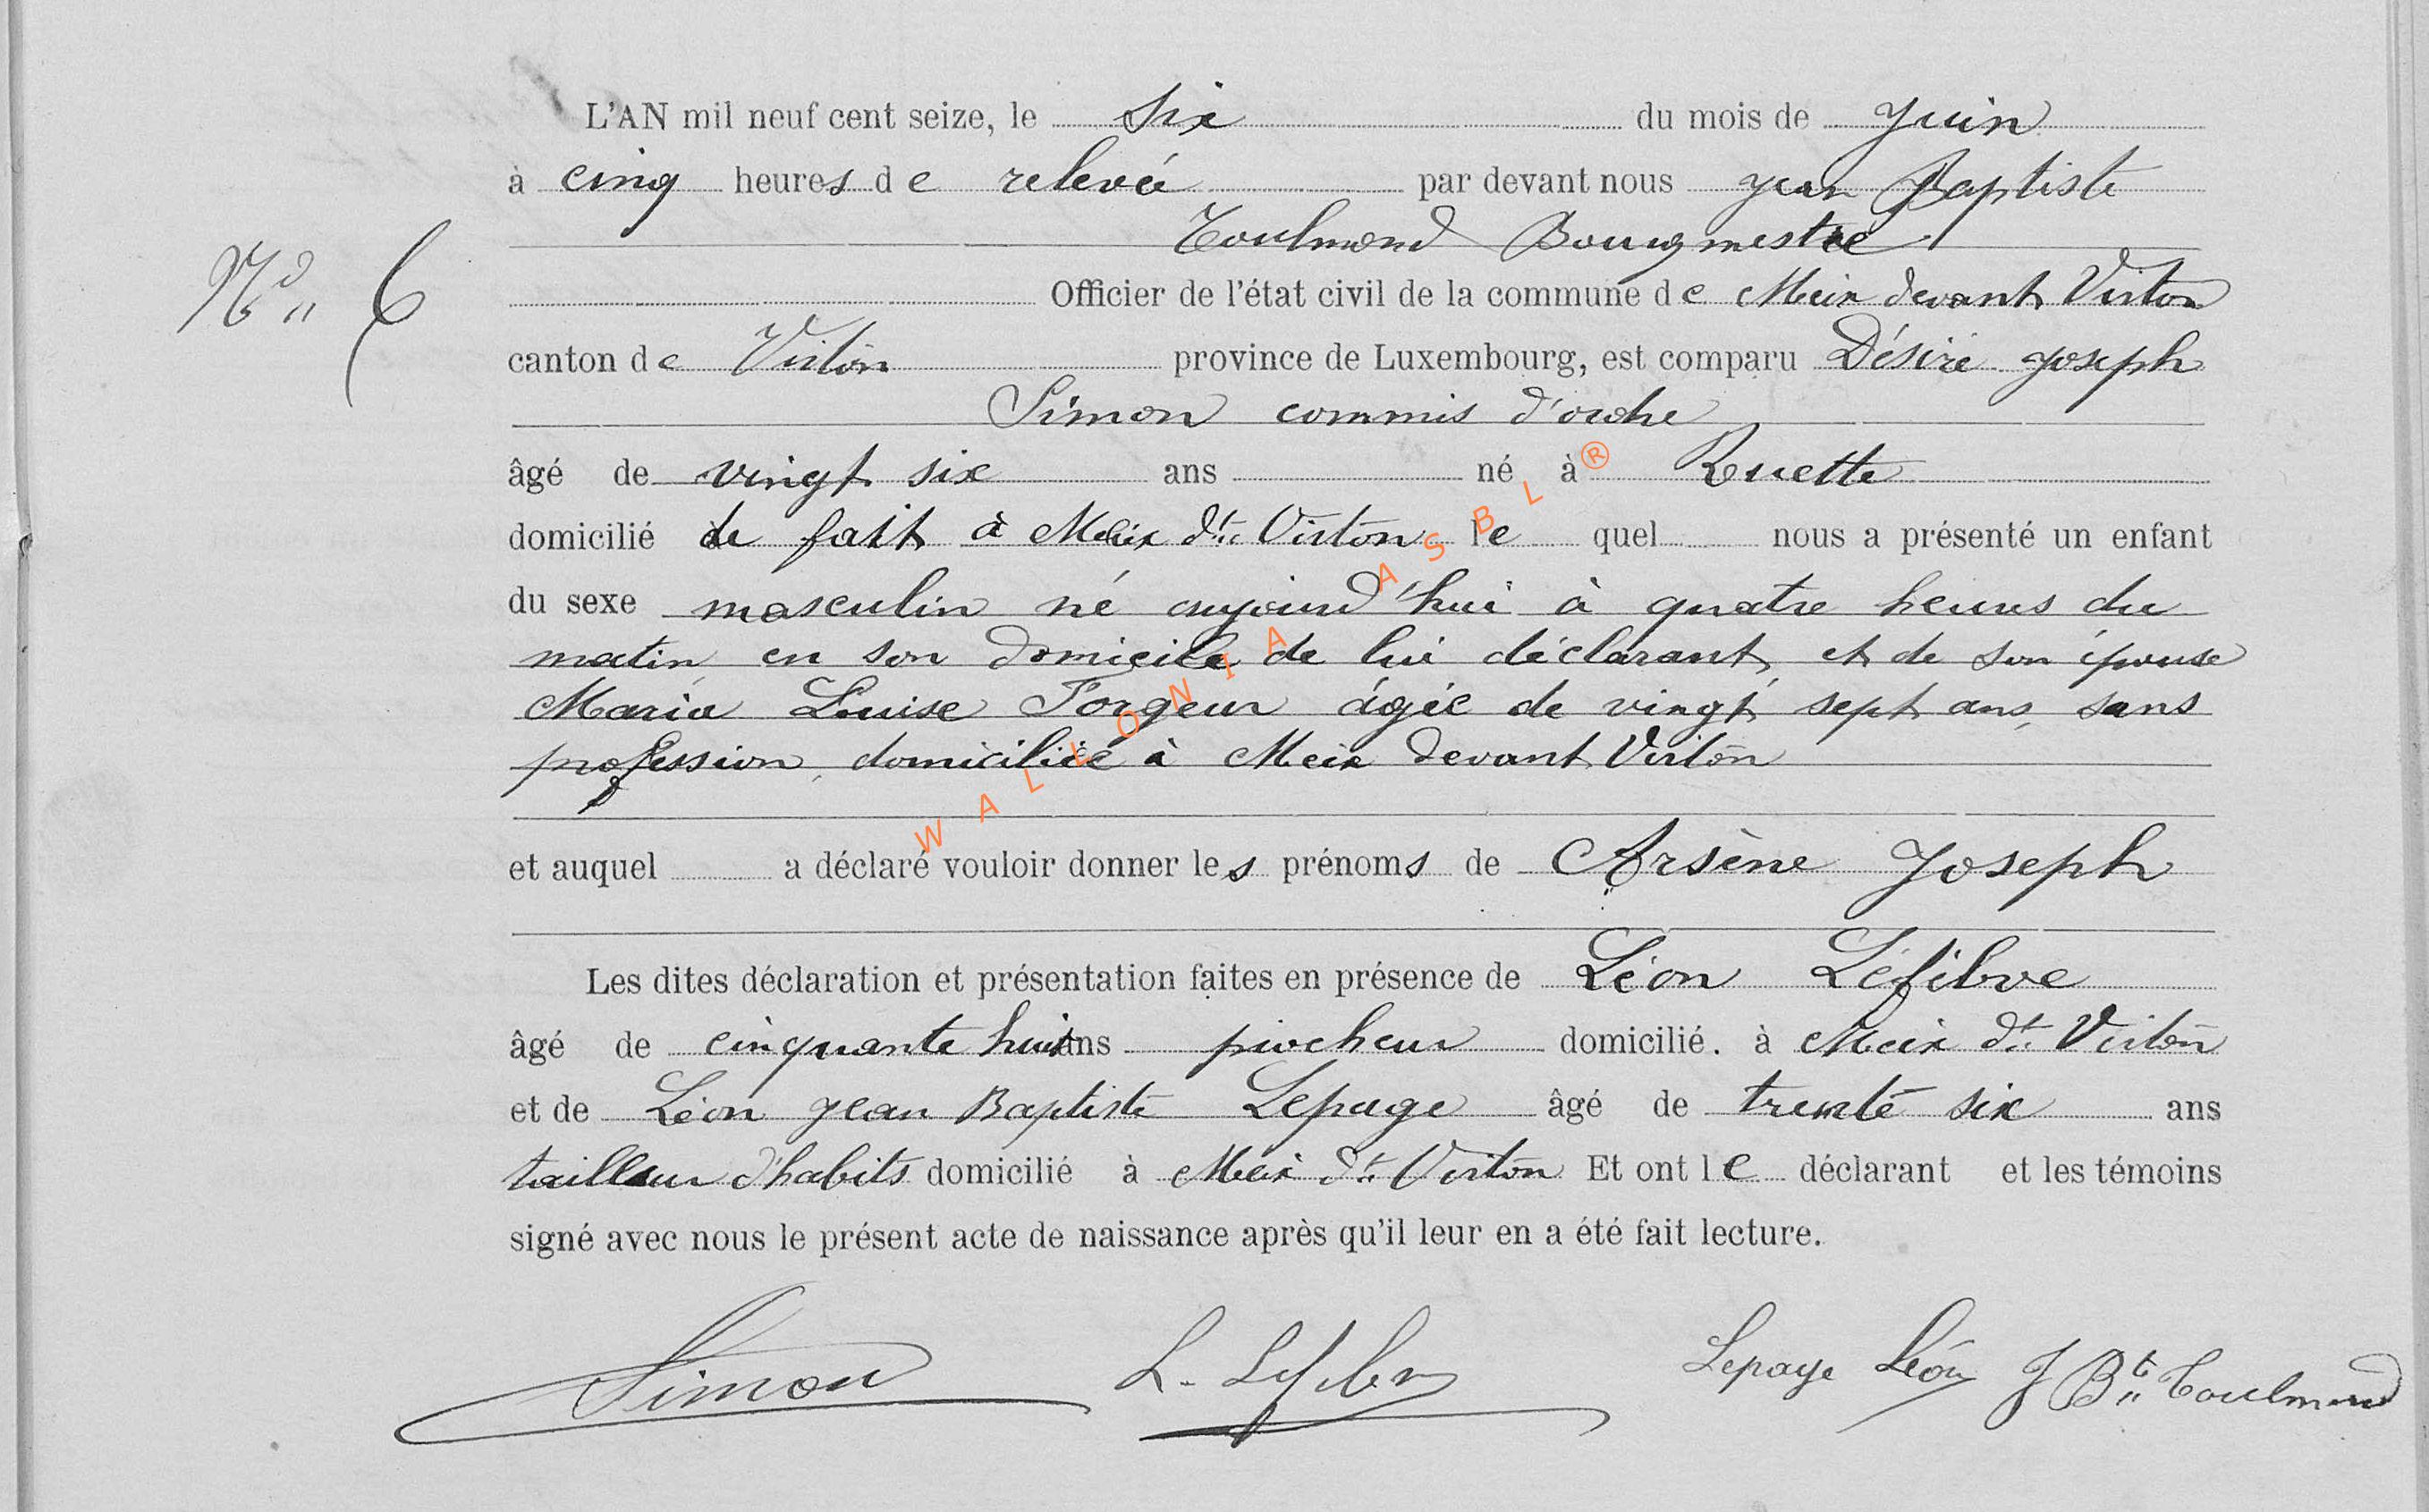 L'AN mil neuf cent seize, le six du mois de Juin
à cinq heures de relevée par devant nous Jean Baptiste
Toulmond Bourgmestre
N° 6
Officier de l'état civil de la commune de Meix devant Virton
canton de Virton province de Luxembourg, est comparu Désiré Joseph
Simon commis d'ordre
âgé de vingt six ans né à Ruette
domicilié de fait à Meix dt Virton lequel nous a présenté un enfant
du sexe masculin né aujourd'hui à quatre heures du
matin en son domicile de lui déclarant, et de son épouse
Maria Louise Forgeur âgée de vingt sept ans, sans
profession, domiciliée à Meix devant Virton
et auquel a déclaré vouloir donner les prénoms de Arsène Joseph
Les dites déclaration et présentation faites en présence de Léon Léfibvre
âgé de cinquante huit ans piocheur domicilié. à Meix dt Virton
et de Léon Jean Baptiste Lepage âgé de trente six ans
tailleur d'habits domicilié à Meix dt Virton Et ont le déclarant et les témoins
signé avec nous le présent acte de naissance après qu'il leur en a été fait lecture.
Simon L. Lefebvre Lepage Léon J Bte Toulmond
WALLONIA ASBL ®